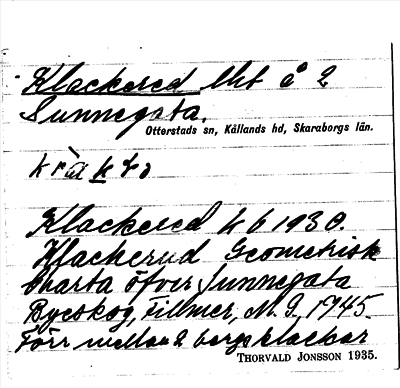 Klackered lht å 2
Sunnegata.
Otterstads sn, Kållands hd, Skaraborgs län.
Klackered
Klackerud Geometrisk
Charta öfver Sunnegata
Byeskog, Fillmer, 1745.
Förr mellan 2 bergsklackar
THORVALD JONSSON 1935.